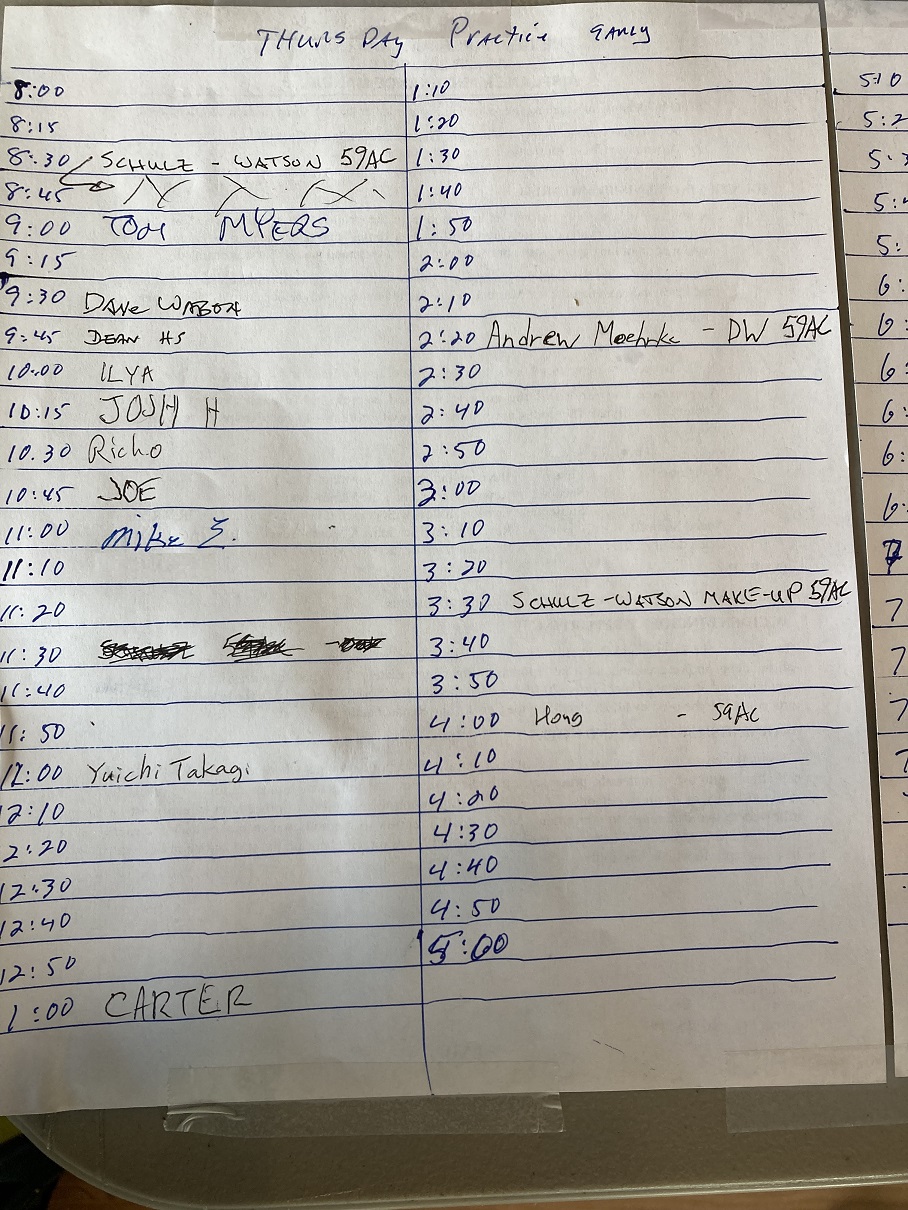 THURSDAY Practice EARLY
8:00
8:15
8:30 SCHULZ - WATSON 59AC
8:45
9:00 TOM MYERS
9:15
9:30 DAVE WATSON
9:45 DEAN HS
10:00 ILYA
10:15 JOSH H
10:30 Richo
10:45 JOE
11:00 Mike
11:10
11:20
11:30
11:40
11:50
12:00 Yuichi Takagi
12:10
12:20
12:30
12:40
12:50
1:00 CARTER
1:10
1:20
1:30
1:40
1:50
2:00
2:10
2:20 Andrew Moehnke - DW 59AC
2:30
2:40
2:50
3:00
3:10
3:20
3:30 SCHULZ-WATSON MAKE-UP 59AC
3:40
3:50
4:00 Hong - 59AC
4:10
4:20
4:30
4:40
4:50
5:00
5:10